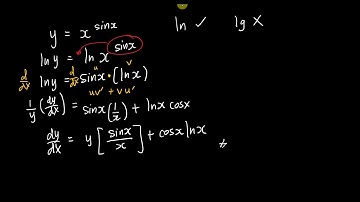 y = x^sinx ln ✓ lg X
ln y = ln x^sinx
d/dx ln y = d/dx sinx · (ln x)
u v
uv' + vu'
1/y (dy/dx) = sinx (1/x) + lnx cosx
dy/dx = y [sinx/x] + cosx lnx